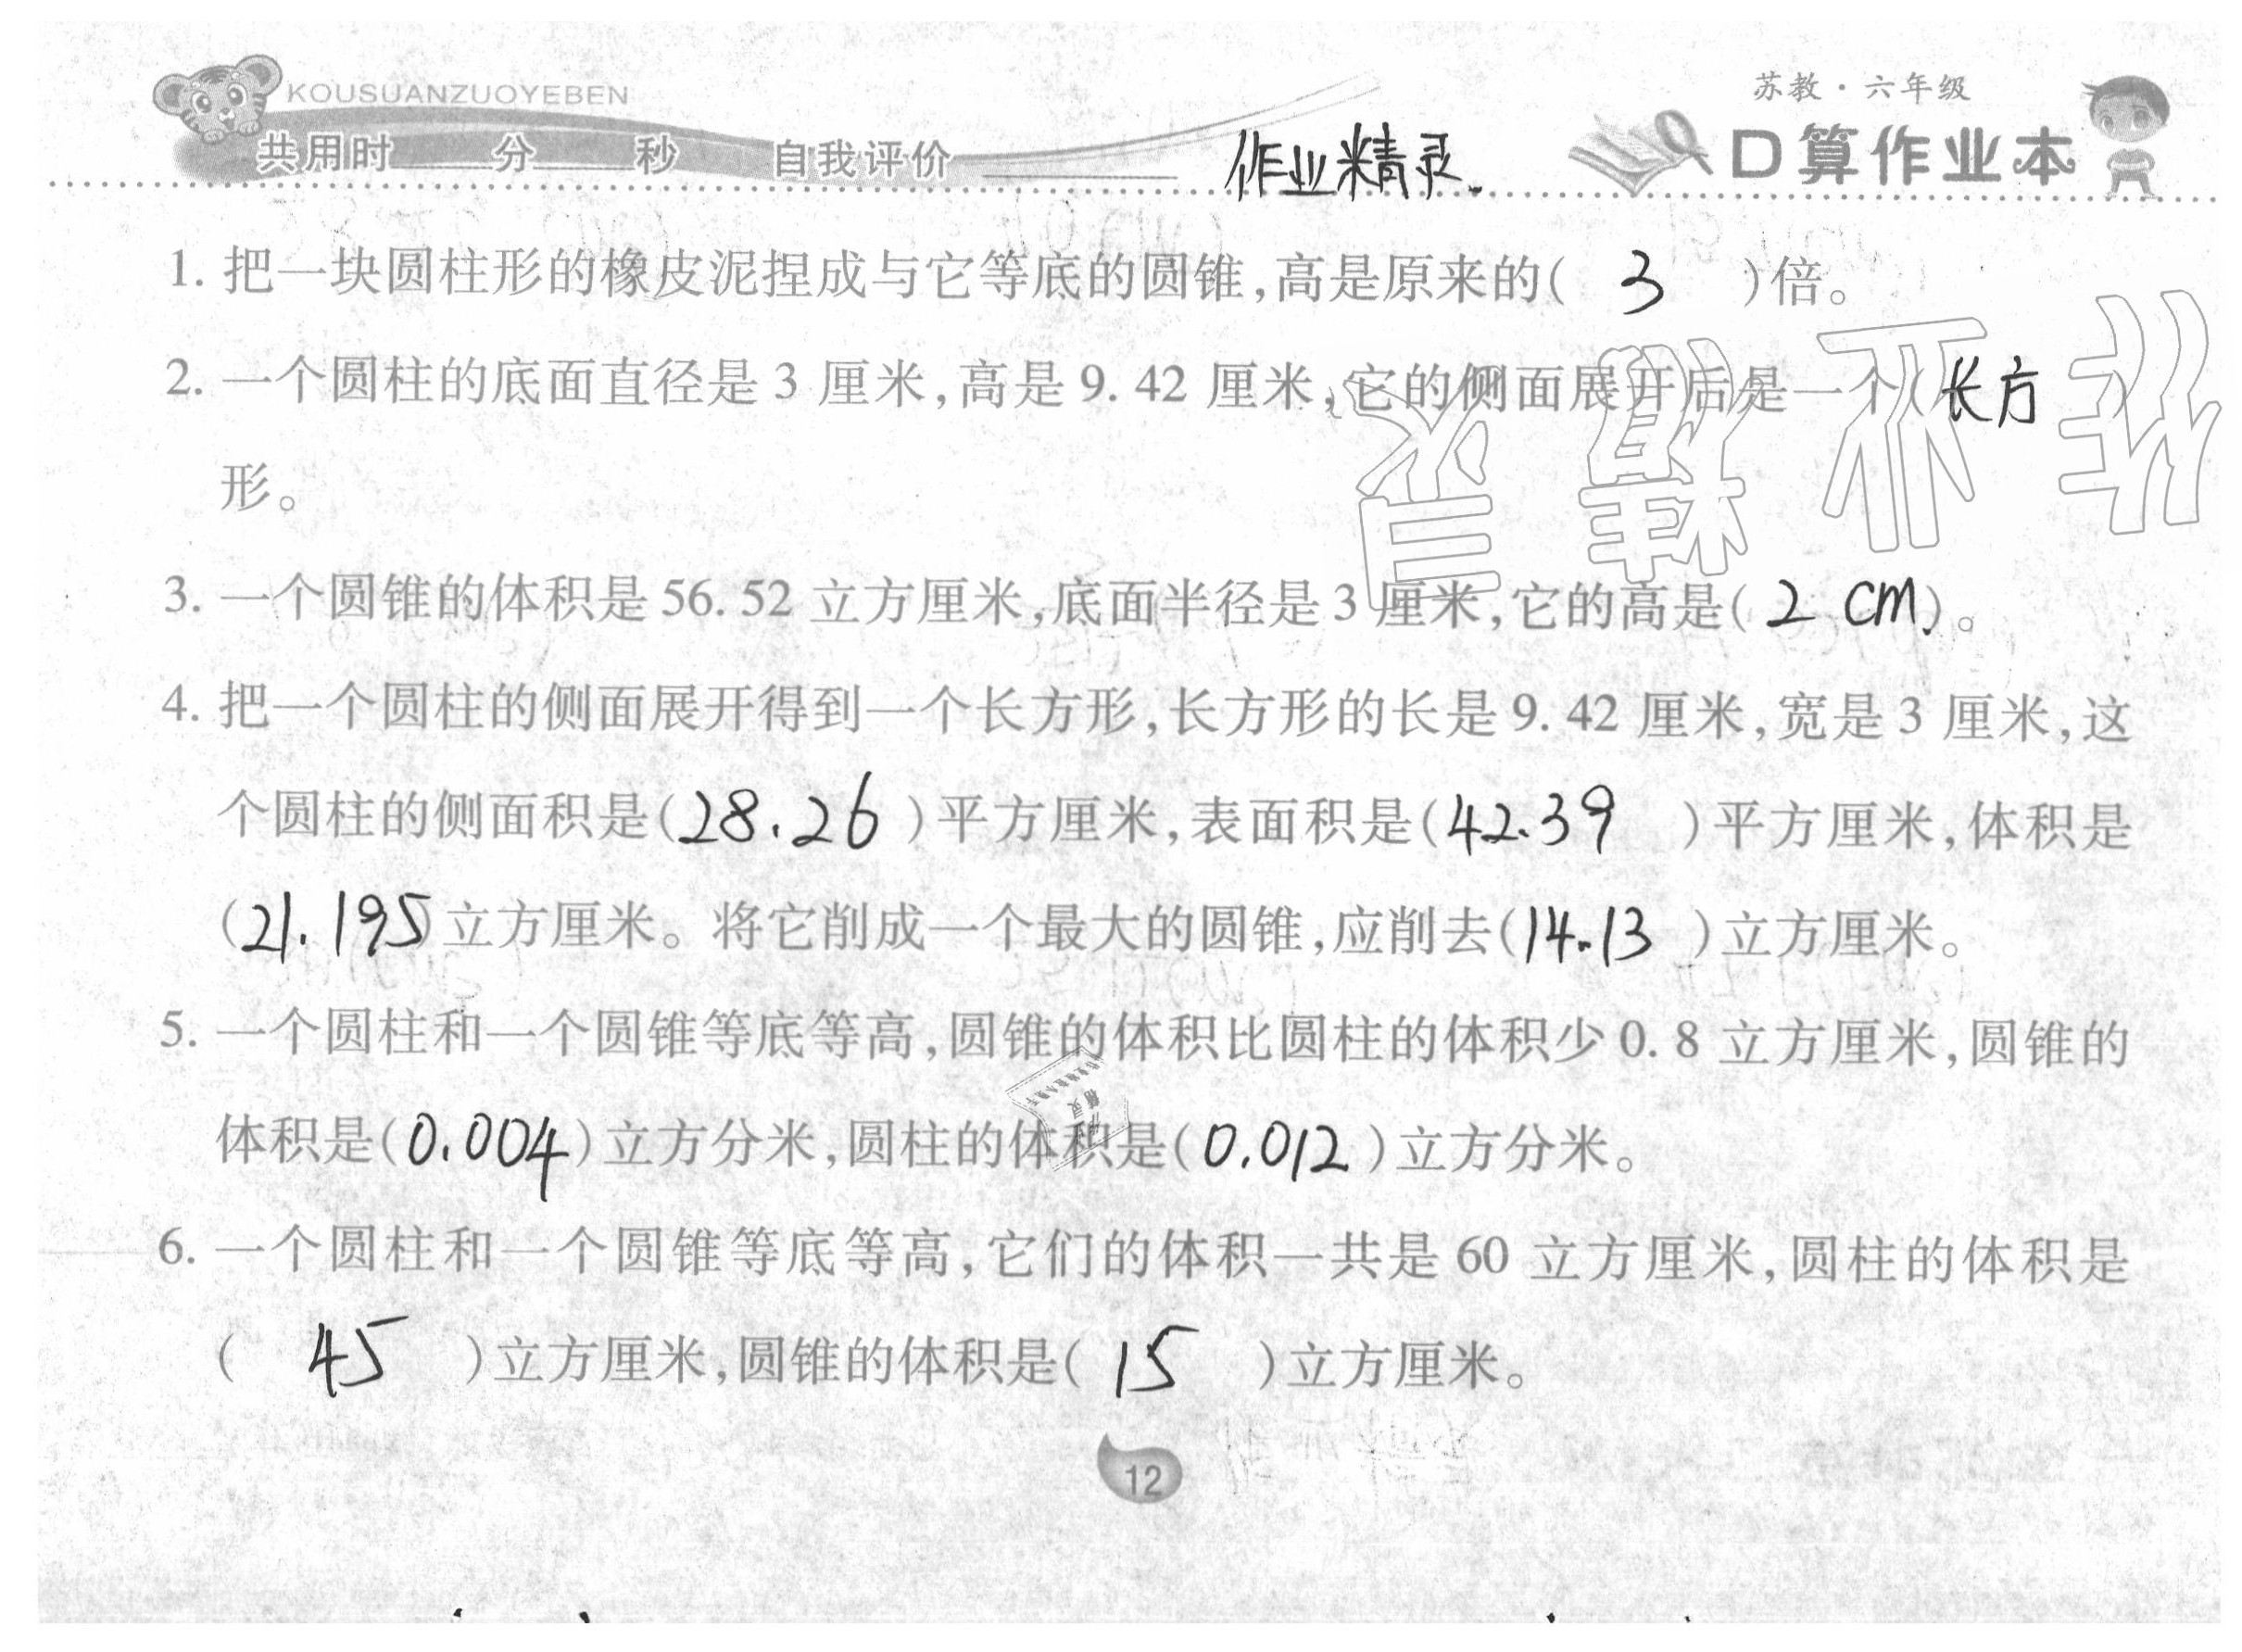 KOUSUANZUOYEBEN
苏教·六年级
共用时 分 秒 自我评价 作业精灵. 口算作业本
1. 把一块圆柱形的橡皮泥捏成与它等底的圆锥,高是原来的( 3 )倍。
2. 一个圆柱的底面直径是 3 厘米,高是 9. 42 厘米,它的侧面展开后是一个(长方 )
形。
3. 一个圆锥的体积是 56. 52 立方厘米,底面半径是 3 厘米,它的高是( 2 cm)。
4. 把一个圆柱的侧面展开得到一个长方形,长方形的长是 9. 42 厘米,宽是 3 厘米,这
个圆柱的侧面积是(28.26 )平方厘米,表面积是(42.39 )平方厘米,体积是
(21.195)立方厘米。将它削成一个最大的圆锥,应削去(14.13 )立方厘米。
5. 一个圆柱和一个圆锥等底等高,圆锥的体积比圆柱的体积少 0. 8 立方厘米,圆锥的
体积是(0.004)立方分米,圆柱的体积是(0.012)立方分米。
6. 一个圆柱和一个圆锥等底等高,它们的体积一共是 60 立方厘米,圆柱的体积是
( 45 )立方厘米,圆锥的体积是( 15 )立方厘米。
12